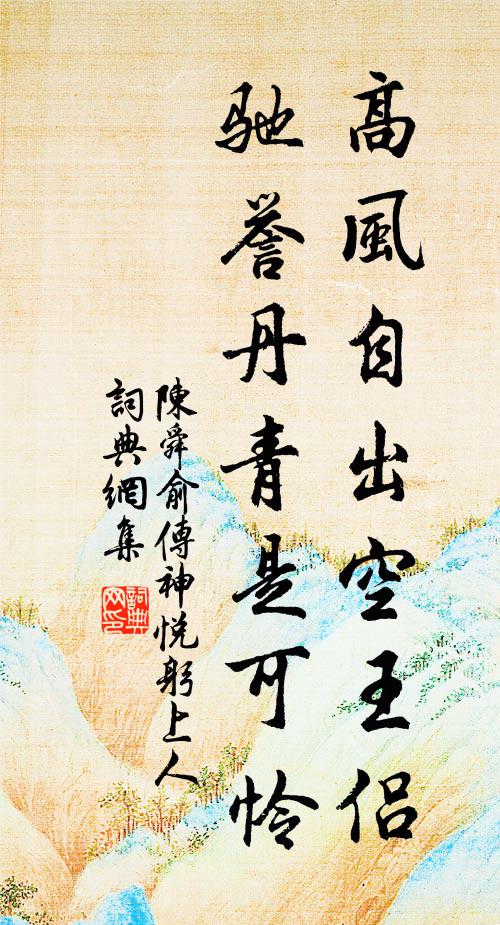 高風自出空王侶
馳誉丹青是可怜
陳舜俞傳神悅躬上人
詞典網集
詞典网印